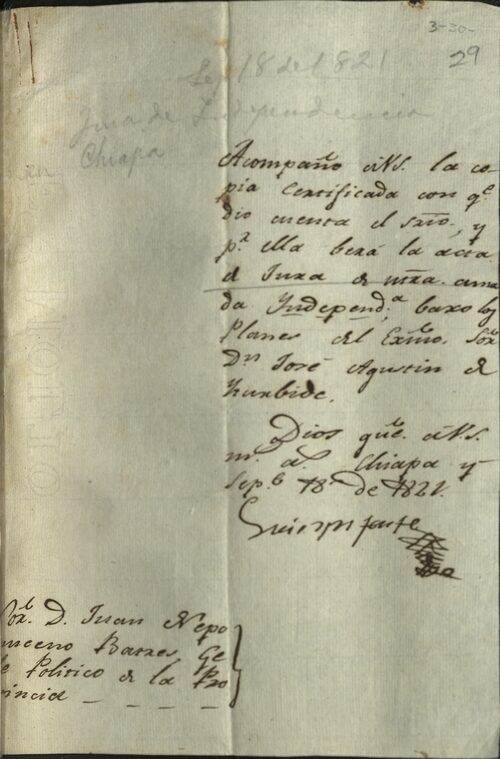 3-30-
29
Sep 18 de 1821
Jura de Independencia
en Chiapa
Acompaño á VS. la co-
pia Certificada con qe.
dio cuenta el Srio, y
pr. ella berá la acta
d Jura de ntra. ama
da Yndepend.a baxo los
Planes del Exmo. Sor
Dn José Agustin de
Yturbide.
Dios gue. á VS.
ms. as. Chiapa y
Sepe. 18 de 1821.
Sor. D. Juan Nepo
muceno Batres, Ge
fe Politico de la Pro
vincia - - - -